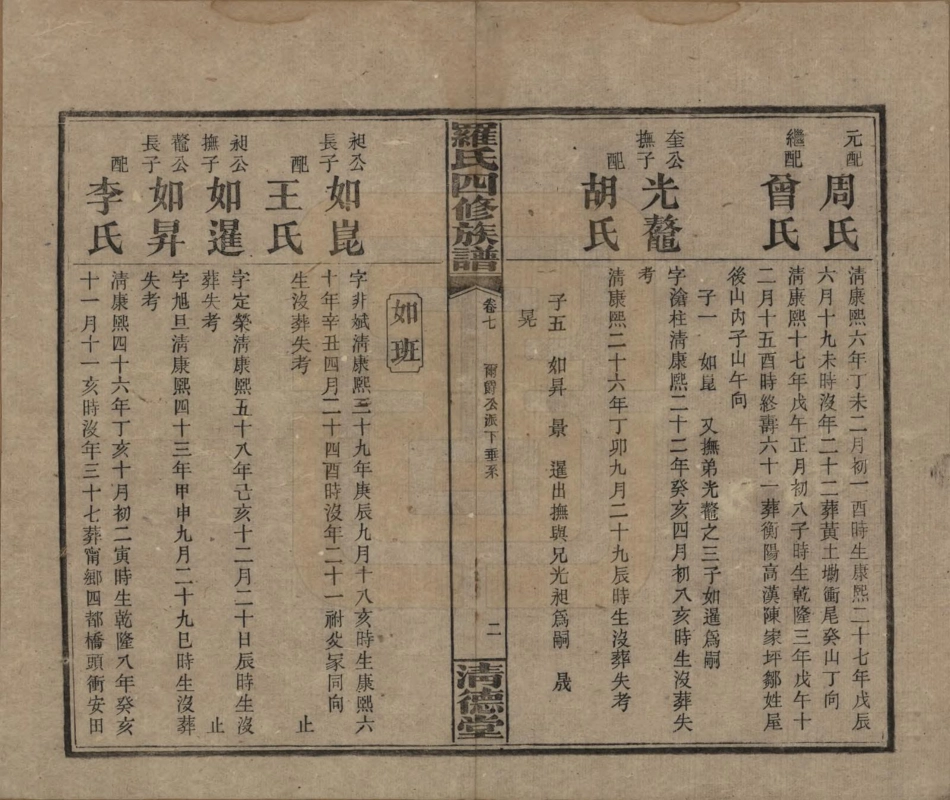 元配
周氏
清康熙六年丁未二月初一酉時生康熙二十七年戊辰
六月十九未時沒年二十二葬黃土塝衝尾癸山丁向
繼配
曾氏
清康熙十七年戊午正月初八子時生乾隆三年戊午十
二月十五酉時終壽六十一葬衡陽高漢陳家坪鄒姓屋
後山內子山午向
子一 如崑 又撫弟光鼇之三子如暹爲嗣
奎公
撫子
光鼇
字滄柱清康熙二十二年癸亥四月初八亥時生沒葬失
考
配
胡氏
清康熙二十六年丁卯九月二十九辰時生沒葬失考
子五 如昇 景 暹出撫與兄光昶爲嗣 晟
晃
羅氏四修族譜
卷七
爾爵公派下垂系
二
清德堂
如班
昶公
長子
如崑
字非斌清康熙三十九年庚辰九月十八亥時生康熙六
十年辛丑四月二十四酉時沒年二十一祔父冢同向
配
王氏
生沒葬失考 止
昶公
撫子
如暹
字定榮清康熙五十八年己亥十二月二十日辰時生沒
葬失考 止
鼇公
長子
如昇
字旭旦清康熙四十三年甲申九月二十九巳時生沒葬
失考
配
李氏
清康熙四十六年丁亥十月初二寅時生乾隆八年癸亥
十一月十一亥時沒年三十七葬甯鄉四都橋頭衝安田